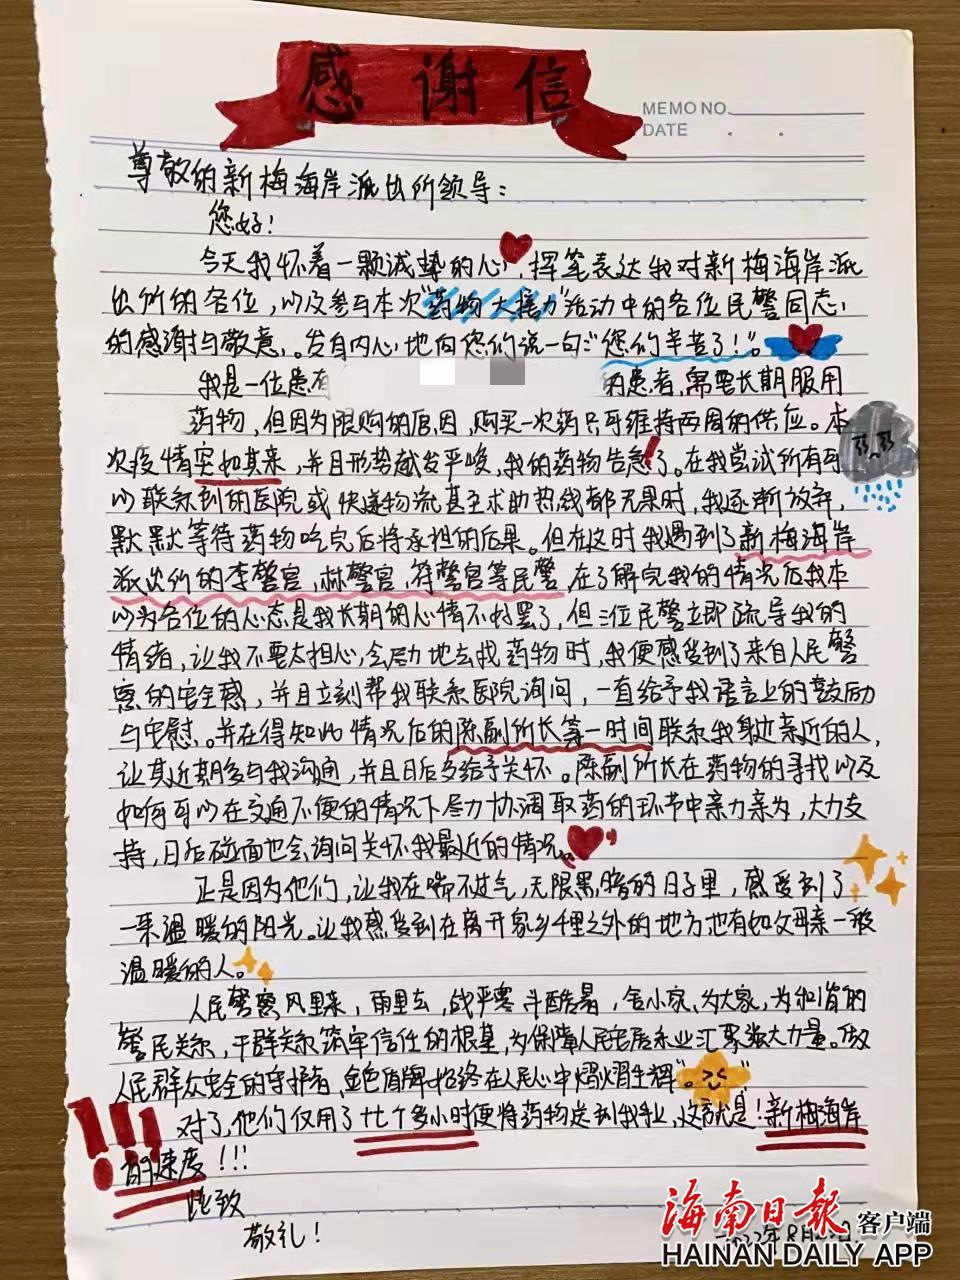 感谢信
MEMO NO.
DATE
尊敬的新梅海岸派出所领导:
您好!
今天我怀着一颗诚挚的心,挥笔表达我对新梅海岸派
出所的各位,以及参与本次"药物大接力"活动中的各位民警同志
的感谢与敬意。发自内心地向您们说一句:"您们辛苦了!"。
我是一位患有 的患者,需要长期服用
药物,但因为限购的原因,购买一次药只可维持两周的供应。本
次疫情突如其来,并且形势越发严峻,我的药物告急!了。在我尝试所有可
以联系到的医院或快递物流甚至求助热线都无果时,我逐渐放弃,
默默等待药物吃完后将承担的后果。但在这时我遇到了新梅海岸
派出所的李警官,林警官,符警官等民警,在了解完我的情况后我本
以为各位的心态是我长期的心情不好罢了,但三位民警立即疏导我的
情绪,让我不要太担心,会尽力地去找药物时,我便感受到了来自人民警
察的安全感,并且立刻帮我联系医院询问,一直给予我语言上的鼓励
与安慰。并在得知此情况后的陈副所长第一时间联系我身边亲近的人,
让其近期多与我沟通,并且日后多给予关怀。陈副所长在药物的寻找以及
如何可以在交通不便的情况下尽力协调取药的环节中亲力亲为,大力支
持,日后碰面也会询问关怀我最近的情况。
正是因为他们,让我在喘不过气,无限黑暗的日子里,感受到了
一束温暖的阳光。让我感受到在离开家乡千里之外的地方也有如父母亲一般
温暖的人。
人民警察,风里来,雨里去,战严寒斗酷暑,舍小家,为大家,为和谐的
警民关系,干群关系筑牢信任的根基,为保障人民安居乐业汇聚强大力量。做
人民群众安全的守护者,金色盾牌始终在人民心中熠熠生辉"。
对了,他们仅用了廿个多小时便将药物送到我手上,这就是!新梅海岸
的速度!!!
此致
敬礼!
二〇二二年8月 日.
海南日报 客户端
HAINAN DAILY APP